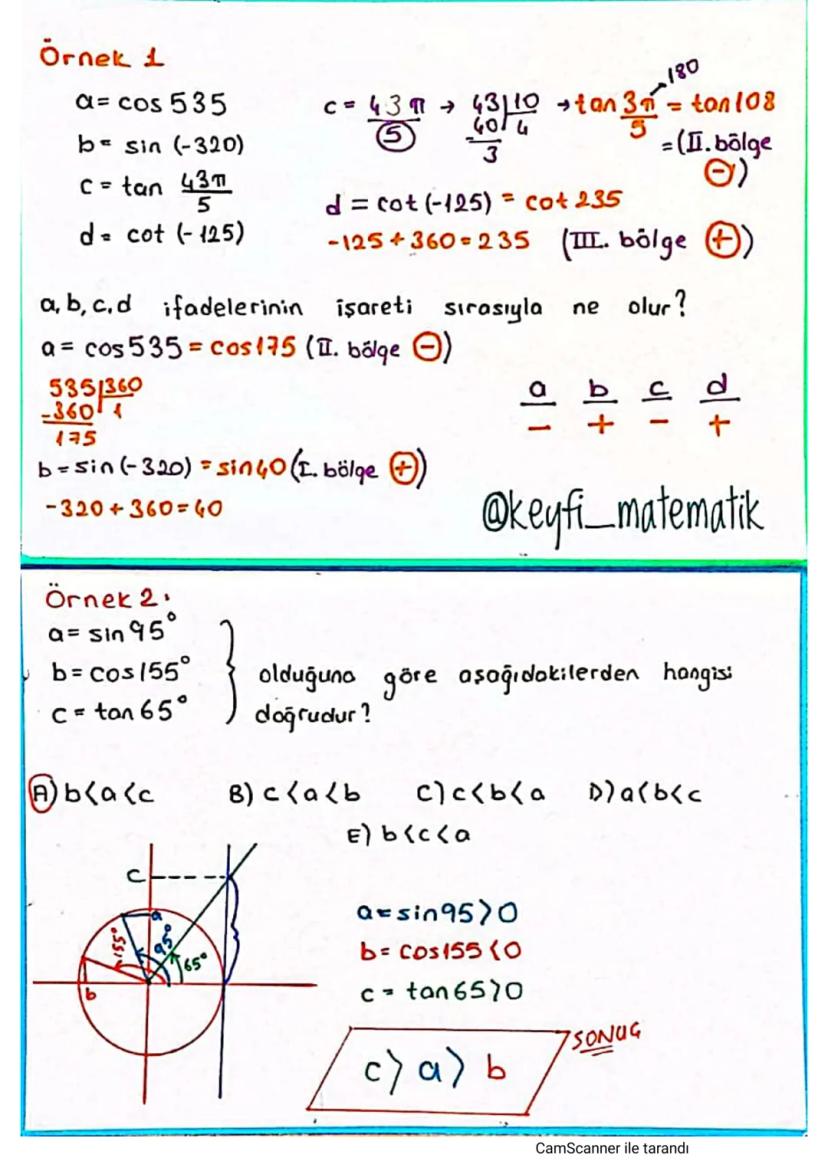 Örnek 1
a = cos 535
b = sin (-320)
c = tan 43π/5
d = cot (-125)
c = 43π/5 → 43|10 → tan 3π/5 = tan 108
180
40 4
3
= (II. bölge -)
d = cot (-125) = cot 235
-125 + 360 = 235 (III. bölge +)
a, b, c, d ifadelerinin işareti sırasıyla ne olur?
a = cos 535 = cos 175 (II. bölge -)
535|360
-360 1
175
a b c d
- + - +
b = sin (-320) = sin 40 (I. bölge +)
-320 + 360 = 40
@keyfi_matematik
Örnek 2:
a = sin 95°
b = cos 155°
c = tan 65°
olduğuna göre aşağıdakilerden hangisi
doğrudur?
A) b<a<c B) c<a<b C) c<b<a D) a<b<c
E) b<c<a
c
a
155°
95°
65°
b
a = sin 95 > 0
b = cos 155 < 0
c = tan 65 > 0
SONUÇ
c > a > b
CamScanner ile tarandı